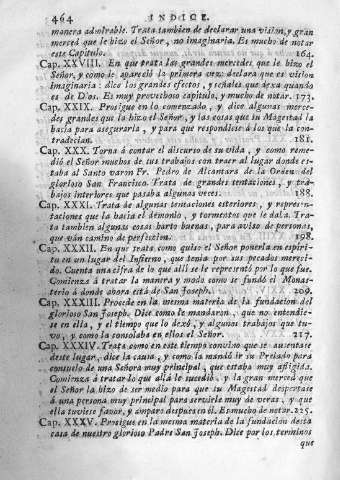 464 INDICE.
manera admirable. Trata tambien de declarar una vision, y gran
merced que le hizo el Señor, no imaginaria. Es mucho de notar
este Capitulo. 164.
Cap. XXVIII. En que trata las grandes mercedes que le hizo el
Señor, y como le apareciò la primera vez: declara que es vision
imaginaria: dice los grandes efectos, y señales que dexa quando
es de Dios. Es muy provechoso capitulo, y mucho de notar. 173.
Cap. XXIX. Prosigue en lo comenzado, y dice algunas merce-
des grandes que la hizo el Señor, y las cosas que su Magestad la
hacia para asegurarla, y para que respondiese à los que la con-
tradecian. 181.
Cap. XXX. Torna à contar el discurso de su vida, y como reme-
diò el Señor muchos de sus trabajos con traer al lugar donde es-
taba al Santo varon Fr. Pedro de Alcantara de la Orden del
glorioso San Francisco. Trata de grandes tentaciones, y tra-
bajos interiores que pasaba algunas veces. 188.
Cap. XXXI. Trata de algunas tentaciones esteriores, y represen-
taciones que la hacia el demonio, y tormentos que le daba. Tra-
ta tambien algunas cosas harto buenas, para aviso de personas,
que ván camino de perfeccion. 198.
Cap. XXXII. En que trata como quiso el Señor ponerla en espiri-
tu en un lugar del Infierno, que tenia por sus pecados mereci-
do. Cuenta una cifra de lo que allí se le representò por lo que fue.
Comienza à tratar la manera y modo como se fundó el Monas-
terio à donde ahora está de San Joseph. 209.
Cap. XXXIII. Procede en la mesma materia de la fundacion del
glorioso San Joseph. Dice como le mandaron, que no entendie-
se en ella, y el tiempo que lo dexó, y algunos trabajos que tu-
vo, y como la consolaba en ellos el Señor. 217.
Cap. XXXIV. Trata como en este tiempo convino que se ausentase
deste lugar, dice la causa, y como la mandò ir su Prelado para
consuelo de una Señora muy principal, que estaba muy afligida.
Comienza à tratar lo que allá le sucediò, y la gran merced que
el Señor la hizo de ser medio para que su Magestad despertase
à una persona muy principal para servirle muy de veras, y que
ella tuviese favor, y amparo despues en él. Es mucho de notar. 225.
Cap. XXXV. Prosigue en la mesma materia de la fundacion desta
casa de nuestro glorioso Padre San Joseph. Dice por los terminos
que